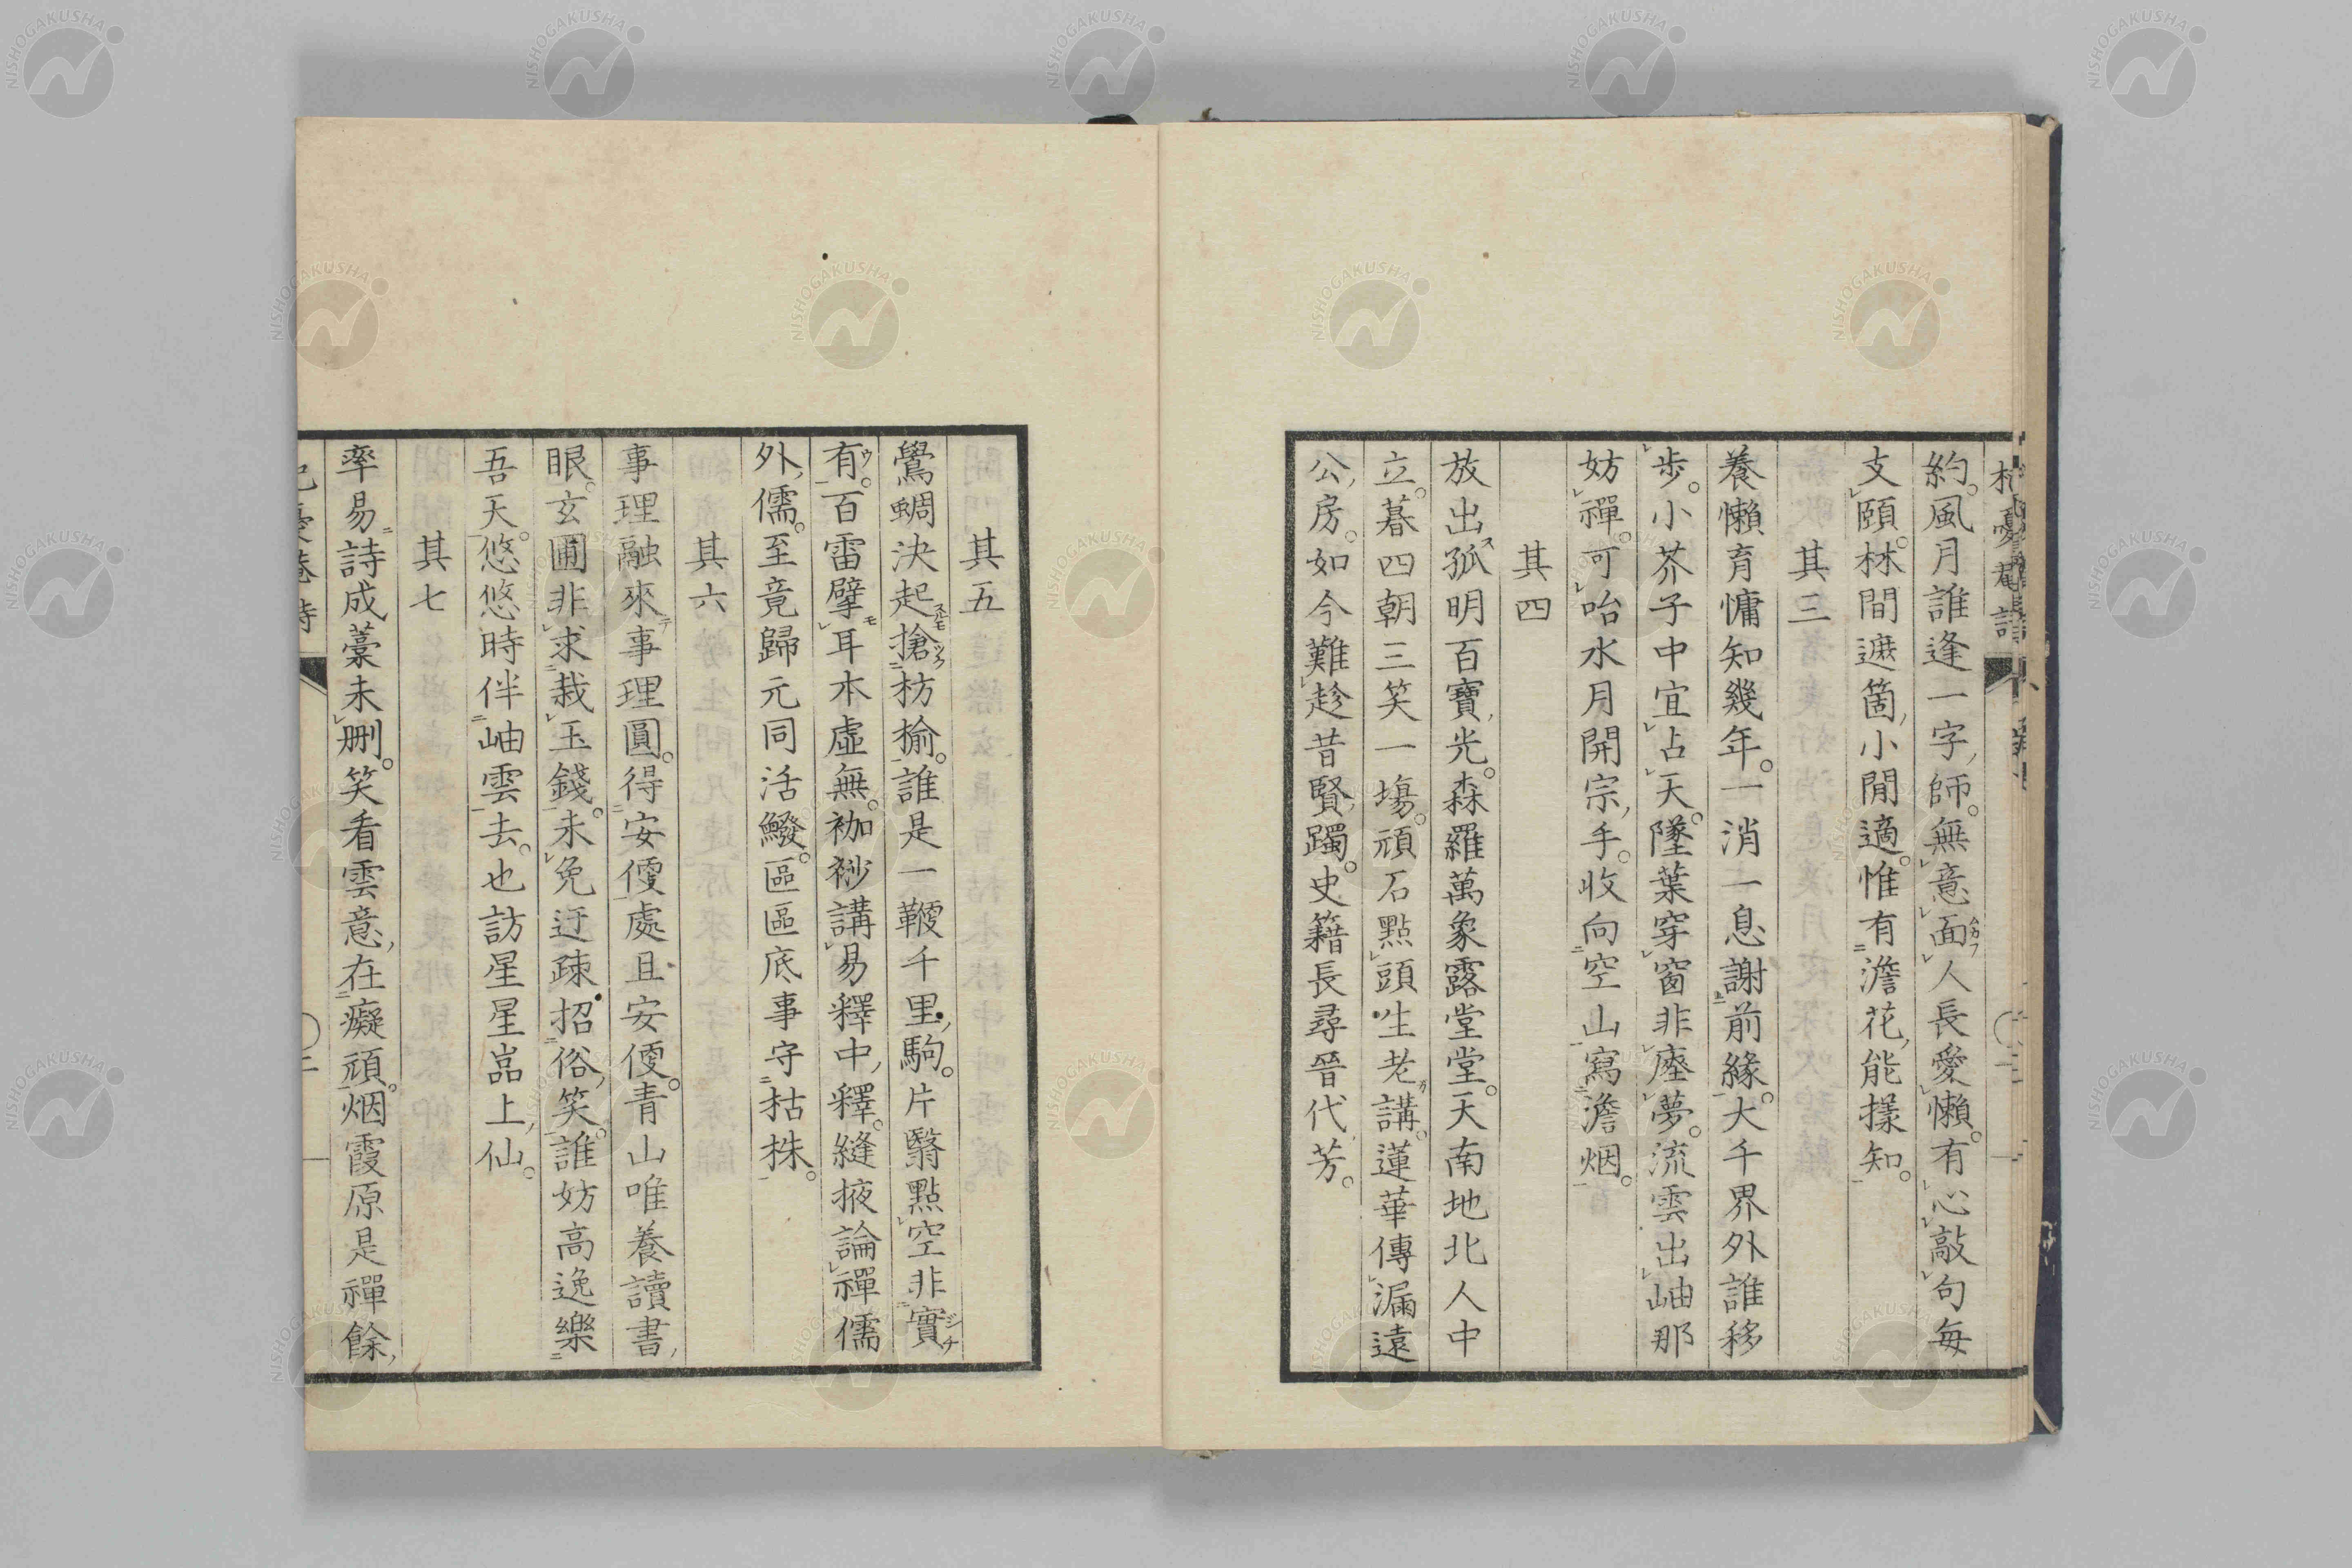 約。風月誰逢一字師。無意面人長愛懶。有心敲句每
支頤。林間遮箇小閒適。惟有澹花能㨾知。
其三
養懶育慵知幾年。一消一息謝前緣。大千界外誰移
步。小芥子中宜占天。墜葉穿窗非塵夢。流雲出岫那
妨禪。可咍水月開宗手。收向空山寫澹烟。
其四
放出孤明百寶光。森羅萬象露堂堂。天南地北人中
立。暮四朝三笑一場。頑石點頭生老講。蓮華傳漏遠
公房。如今難趁昔賢躅。史籍長尋晉代芳。
其五
鷽蜩決起搶枋榆。誰是一鞭千里駒。片翳點空非實
有。百雷擘耳本虛無。袈裟講易釋中釋。縫掖論禪儒
外儒。至竟歸元同活鱍。區區底事守枯株。
其六
事理融來事理圓。得安便處且安便。青山唯養讀書
眼。玄圃非求栽玉錢。未免迂疎招俗笑。誰妨高逸樂
吾天。悠悠時伴岫雲去。也訪星星嵓上仙。
其七
率易詩成藁未刪。笑看雲意在癡頑。烟霞原是禪餘
NISHOGAKUSHA